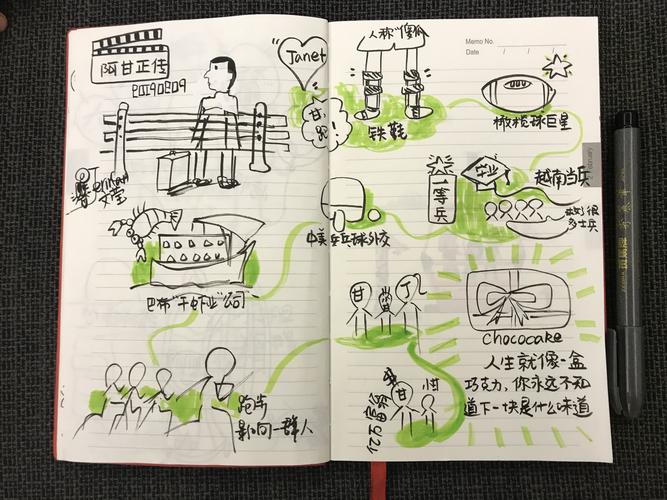 阿甘正传
20190809
Janet
甘,
跑!
文堂
巴布"干虾业"公司
跑步
影响一群人
人称"傻偷
铁鞋
Memo No.
Date / / /
橄榄球巨星
February
毕业
越南当兵
一等兵
救到很
多士兵
中美乒乓球外交
甘
J
甘
小甘
亿万富翁
chococake
人生就像一盒
巧克力,你永远不知
道下一块是什么味道